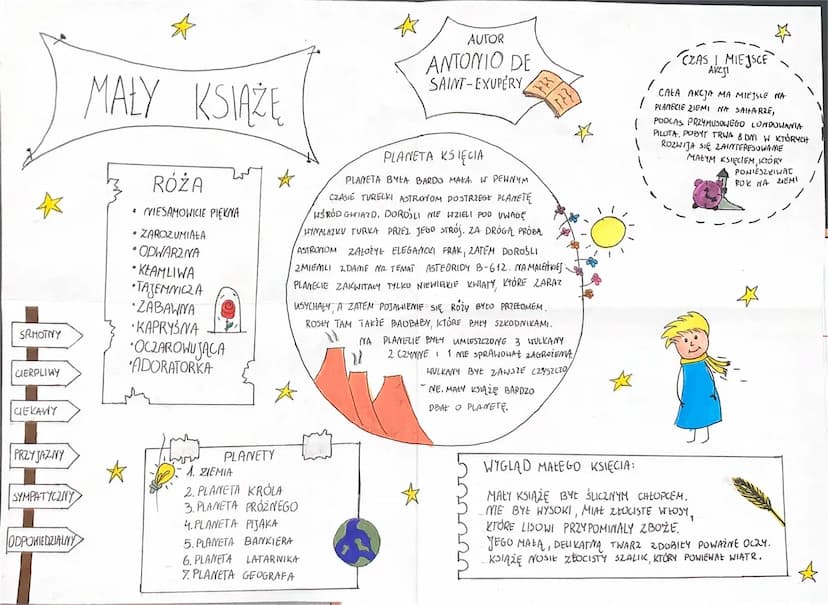 MAŁY KSIĄŻĘ
AUTOR
ANTONIO DE
SAINT-EXUPÉRY
CZAS I MIEJSCE
AKCJI
CAŁA AKCJA MA MIEJSCE NA
PLANECIE ZIEMI NA SAHARZE,
PODCZAS PRZYMUSOWEGO LONDOWANIA
PILOTA. POBYT TRWA 8 DNI W KTÓRYCH
ROZWIJA SIĘ ZAINTERESOWANIE
MAŁYM KSIĘCIEM, KTÓRY
POMIESZKIWAŁ
ROK NA ZIEMI
RÓŻA
• NIESAMOWICIE PIĘKNA
• ZAROZUMIAŁA
• ODWARZNA
• KŁAMLIWA
• TAJEMNICZA
• ZABAWNA
• KAPRYŚNA
• OCZAROWUJĄCA
• ADORATORKA
PLANETA KSIĘCIA
PLANETA BYŁA BARDO MAŁA. W PEWNYM
CZASIE TURECKI ASTRONOM DOSTRZEGŁ PLANETĘ
WŚRÓD GWIAZD. DOROŚLI NIE WZIELI POD UWAGĘ
WYNALAZKU TURKA PRZEZ JEGO STRÓJ. ZA DRÓGĄ PRÓBĄ
ASTRONOM ZAŁOŻYŁ ELEGANCKI FRAK, ZATEM DOROŚLI
ZMIENILI ZDANIE NA TEMAT ASTEORIDY B-612. NA MALEŃKIEJ
PLANECIE ZAKWITAŁY TYLKO NIEWIELKIE KWIATY, KTÓRE ZARAZ
USYCHAŁY, A ZATEM POJAWIENIE SIĘ RÓŻY BYŁO PRZEŁOMEM.
ROSŁY TAM TAKŻE BAOBABY, KTÓRE BYŁY SZKODNIKAMI.
NA PLANECIE BYŁY UMIESZCZONE 3 WULKANY
2 CZYNNE I 1 NIE SPRAWOWAŁ ZAGROŻENIA.
WULKANY BYŁ ZAWSZE CZYSZCZO
- NE. MAŁY KSIĄŻĘ BARDZO
DBAŁ O PLANETĘ.
SAMOTNY
CIERPLIWY
CIEKAWY
PRZYJAZNY
SYMPATYCZNY
ODPOWIEDZIALNY
PLANETY
1. ZIEMIA
2. PLANETA KRÓLA
3. PLANETA PRÓŻNEGO
4. PLANETA PIJAKA
5. PLANETA BANKIERA
6. PLANETA LATARNIKA
7. PLANETA GEOGRAFA
WYGLĄD MAŁEGO KSIĘCIA:
MAŁY KSIĄŻĘ BYŁ ŚLICZNYM CHŁOPCEM.
NIE BYŁ WYSOKI, MIAŁ ZŁOCISTE WŁOSY,
KTÓRE LISOWI PRZYPOMINAŁY ZBOŻE.
JEGO MAŁĄ, DELIKATNĄ TWARZ ZDOBIŁY POWAŻNE OCZY.
KSIĄŻĘ NOSIŁ ZŁOCISTY SZALIK, KTÓRY POWIEWAŁ WIATR.